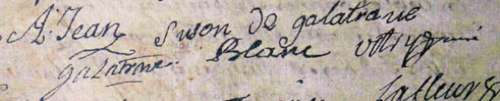 A. Jean Suson de galatrave
galatrave Blanc
Lafleur